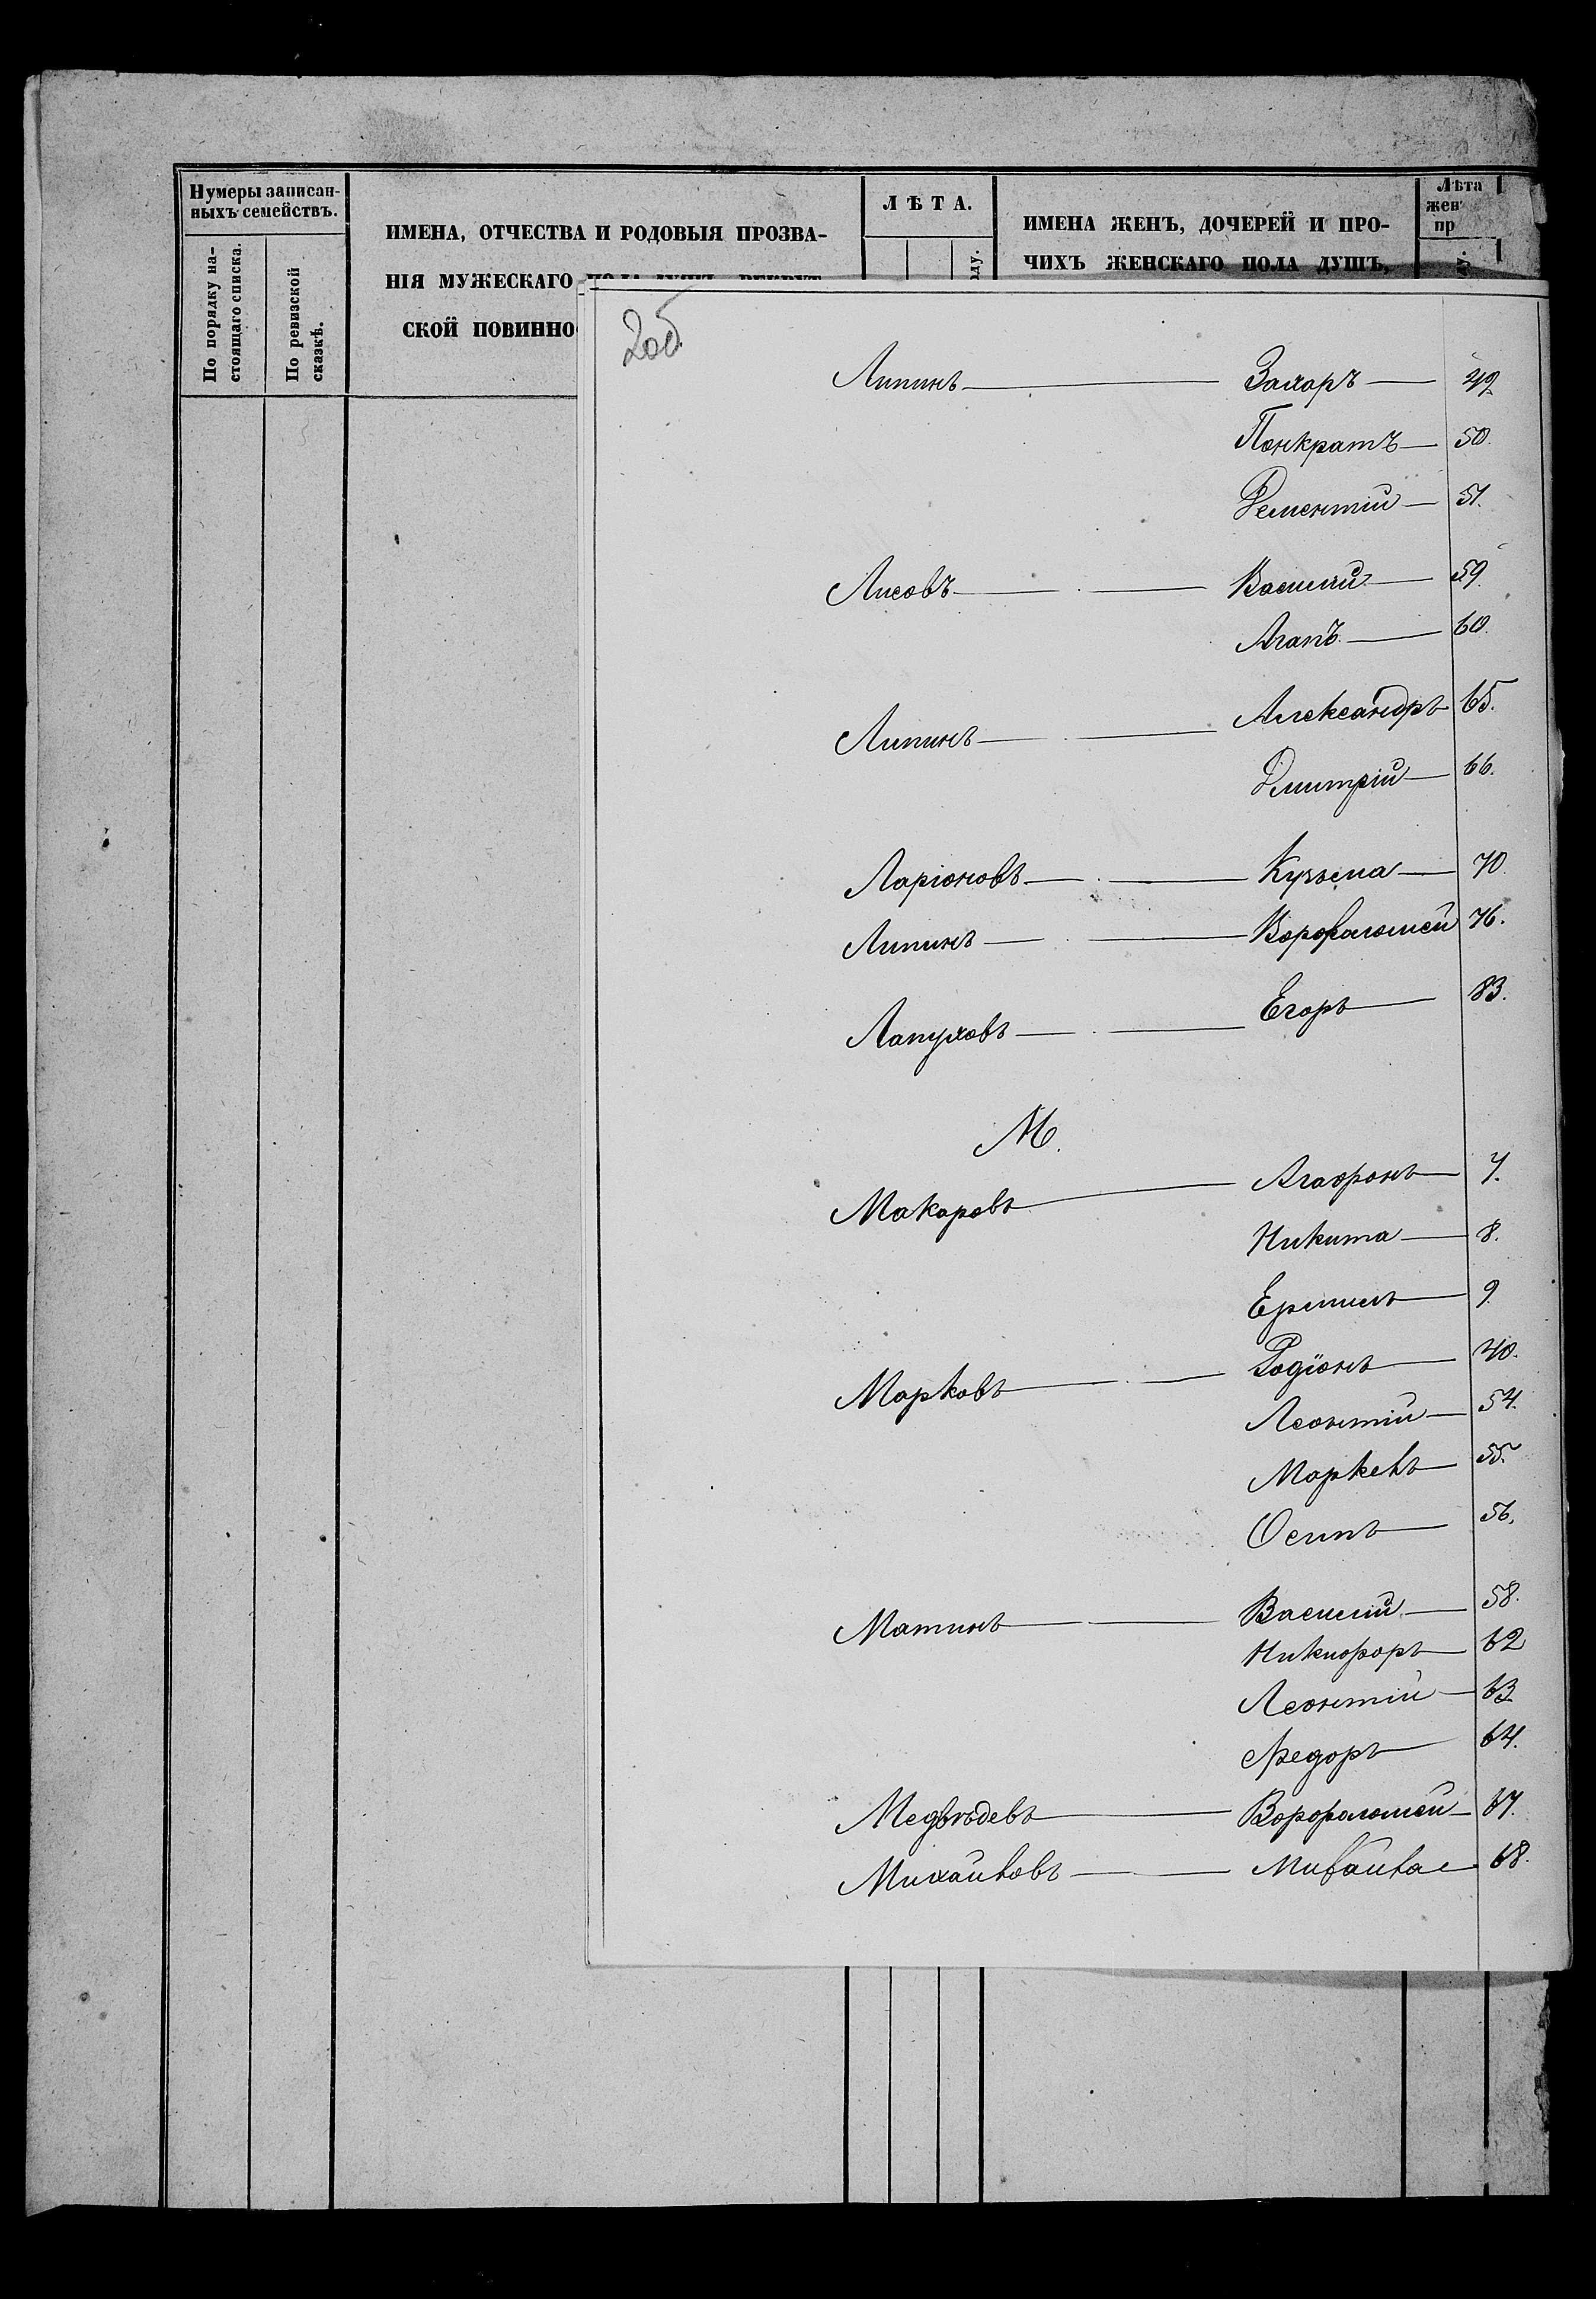 Нумеры записан-
ныхъ семействъ.
По порядку на-
стоящаго списка.
По ревизской
сказкѣ.
ИМЕНА, ОТЧЕСТВА И РОДОВЫЯ ПРОЗВА-
НІЯ МУЖЕСКАГО
СКОЙ ПОВИННО
ЛѢТА.
ИМЕНА ЖЕНЪ, ДОЧЕРЕЙ И ПРО-
ЧИХЪ ЖЕНСКАГО ПОЛА ДУШЪ,
Лѣта
жен
пр
2об
Липинъ Захаръ 49
Понкратъ 50.
Дементій 51.
Лисовъ Василій 59
Агапъ 60.
Липинъ Александръ 65.
Дмитрій 66.
Ларіоновъ Кузьма 70.
Липинъ Ворфаломей 76.
Лапуховъ Егоръ 83.
М.
Макаровъ Агафонъ 7.
Никита 8.
Ермилъ 9.
Марковъ Родіонъ 40.
Леонтій 54.
Маркелъ 55.
Осипъ 56.
Матинъ Василій 58.
Никифоръ 62
Леонтій 63
Федоръ 64.
Медвѣдевъ Ворфаломей 67.
Михайловъ Михайла 68.